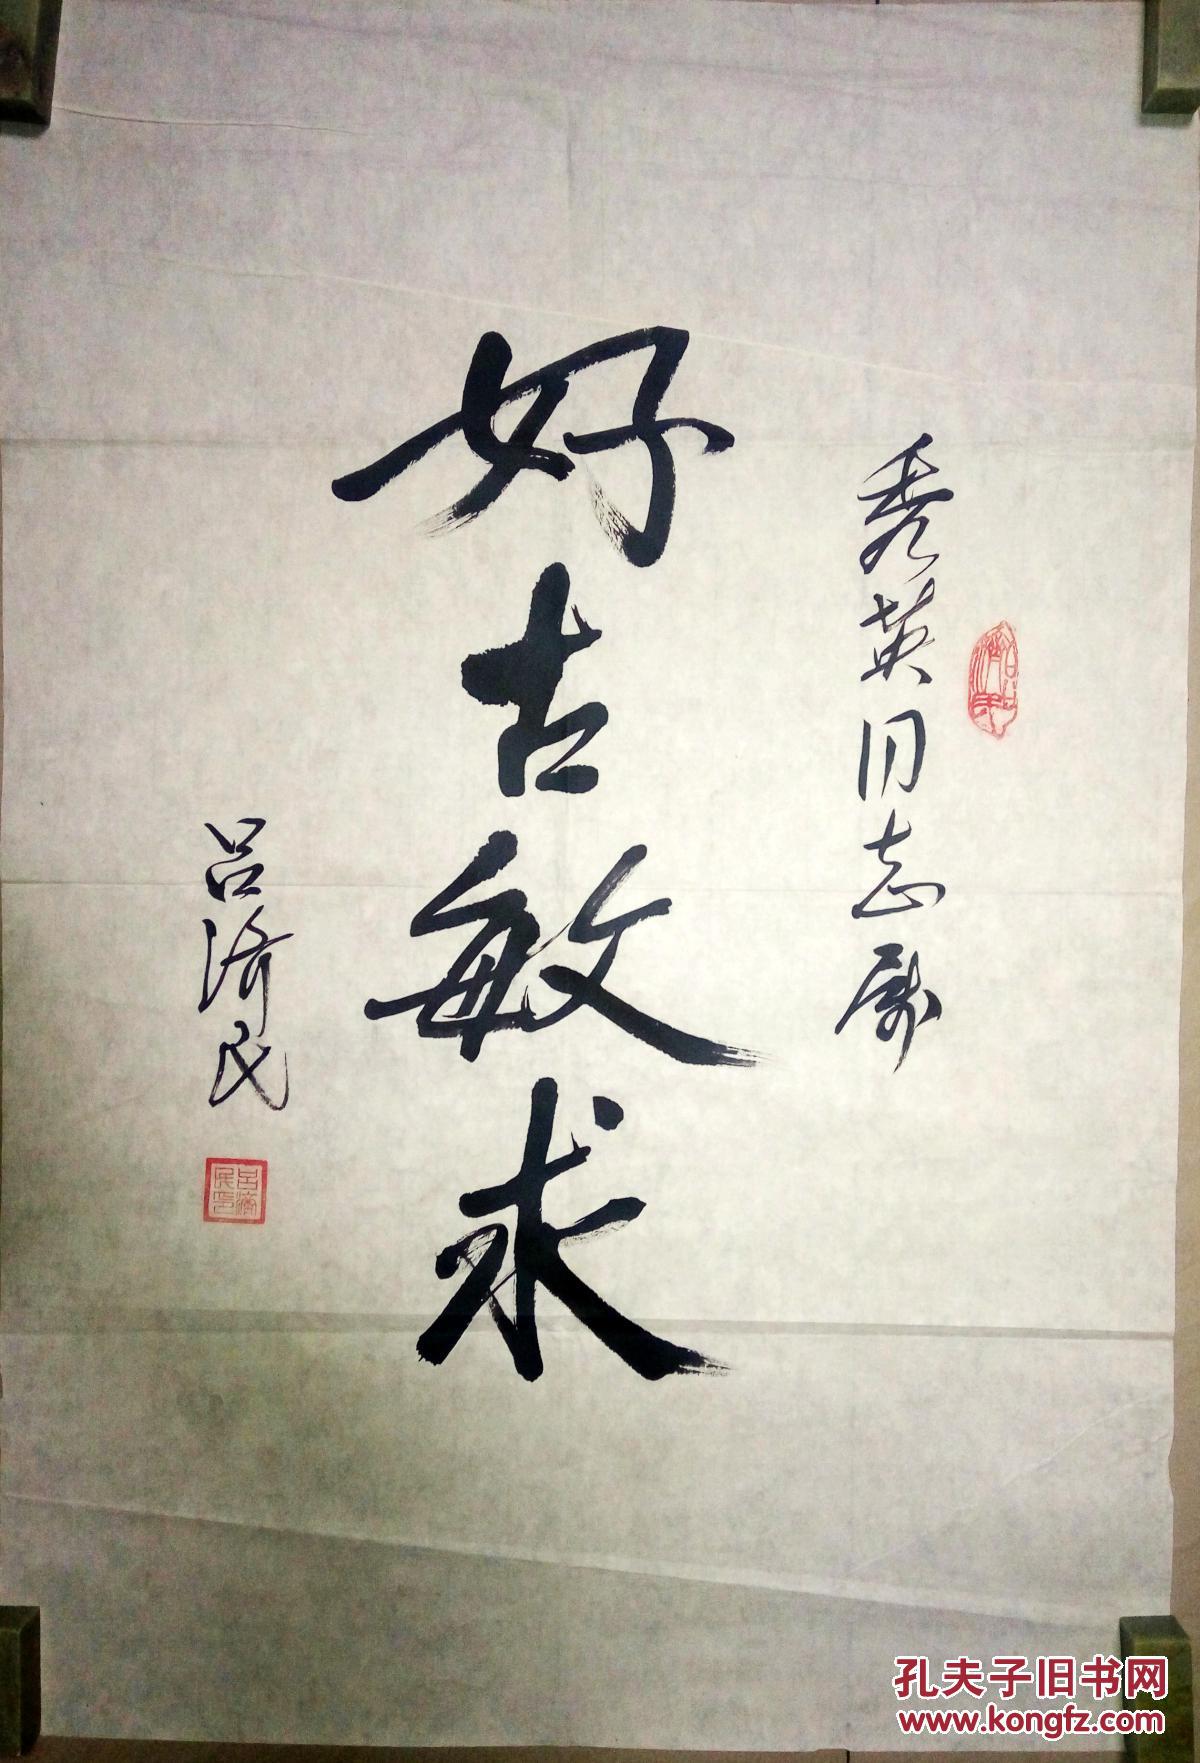 秀英同志属
好古敏求
吕济民
吕济民
吕济民印
孔夫子旧书网
www.kongfz.com